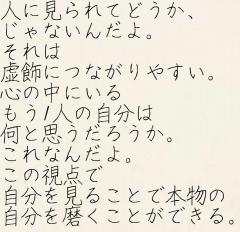 人に見られてどうか、
じゃないんだよ。
それは
虚飾につながりやすい。
心の中にいる
もう1人の自分は
何と思うだろうか。
これなんだよ。
この視点で
自分を見ることで本物の
自分を磨くことができる。